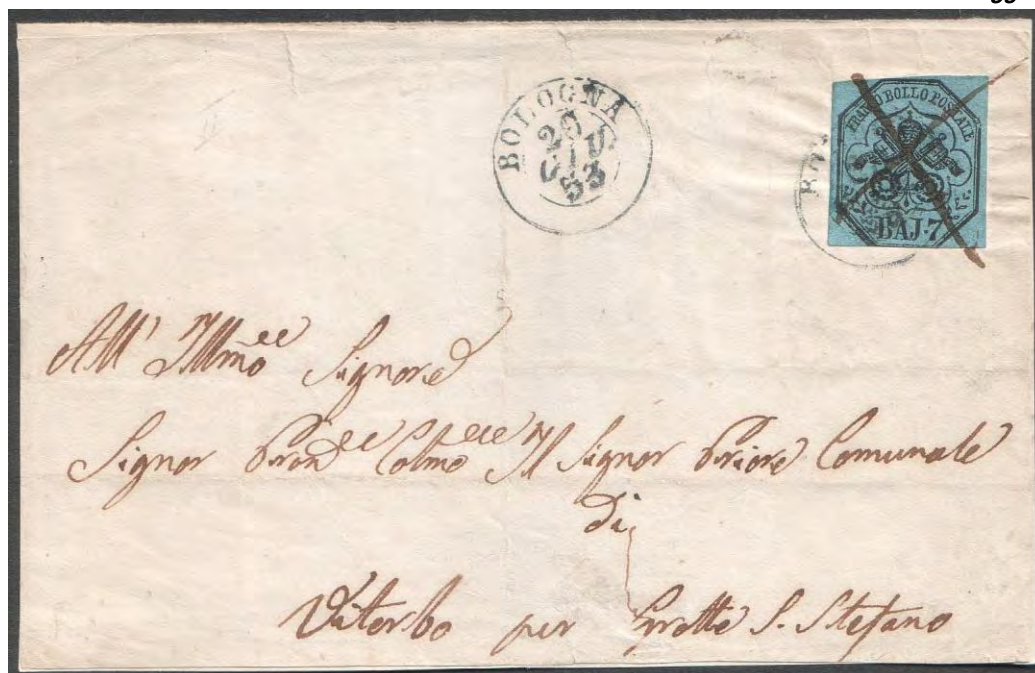 BOLOGNA
GIU
53
FRANCO BOLLO POSTALE
BAJ. 7
BO
All' Illmo Signore
Signor Pron Colmo Il Signor Priore Comunale
Di
Viterbo per Grotte S. Stefano